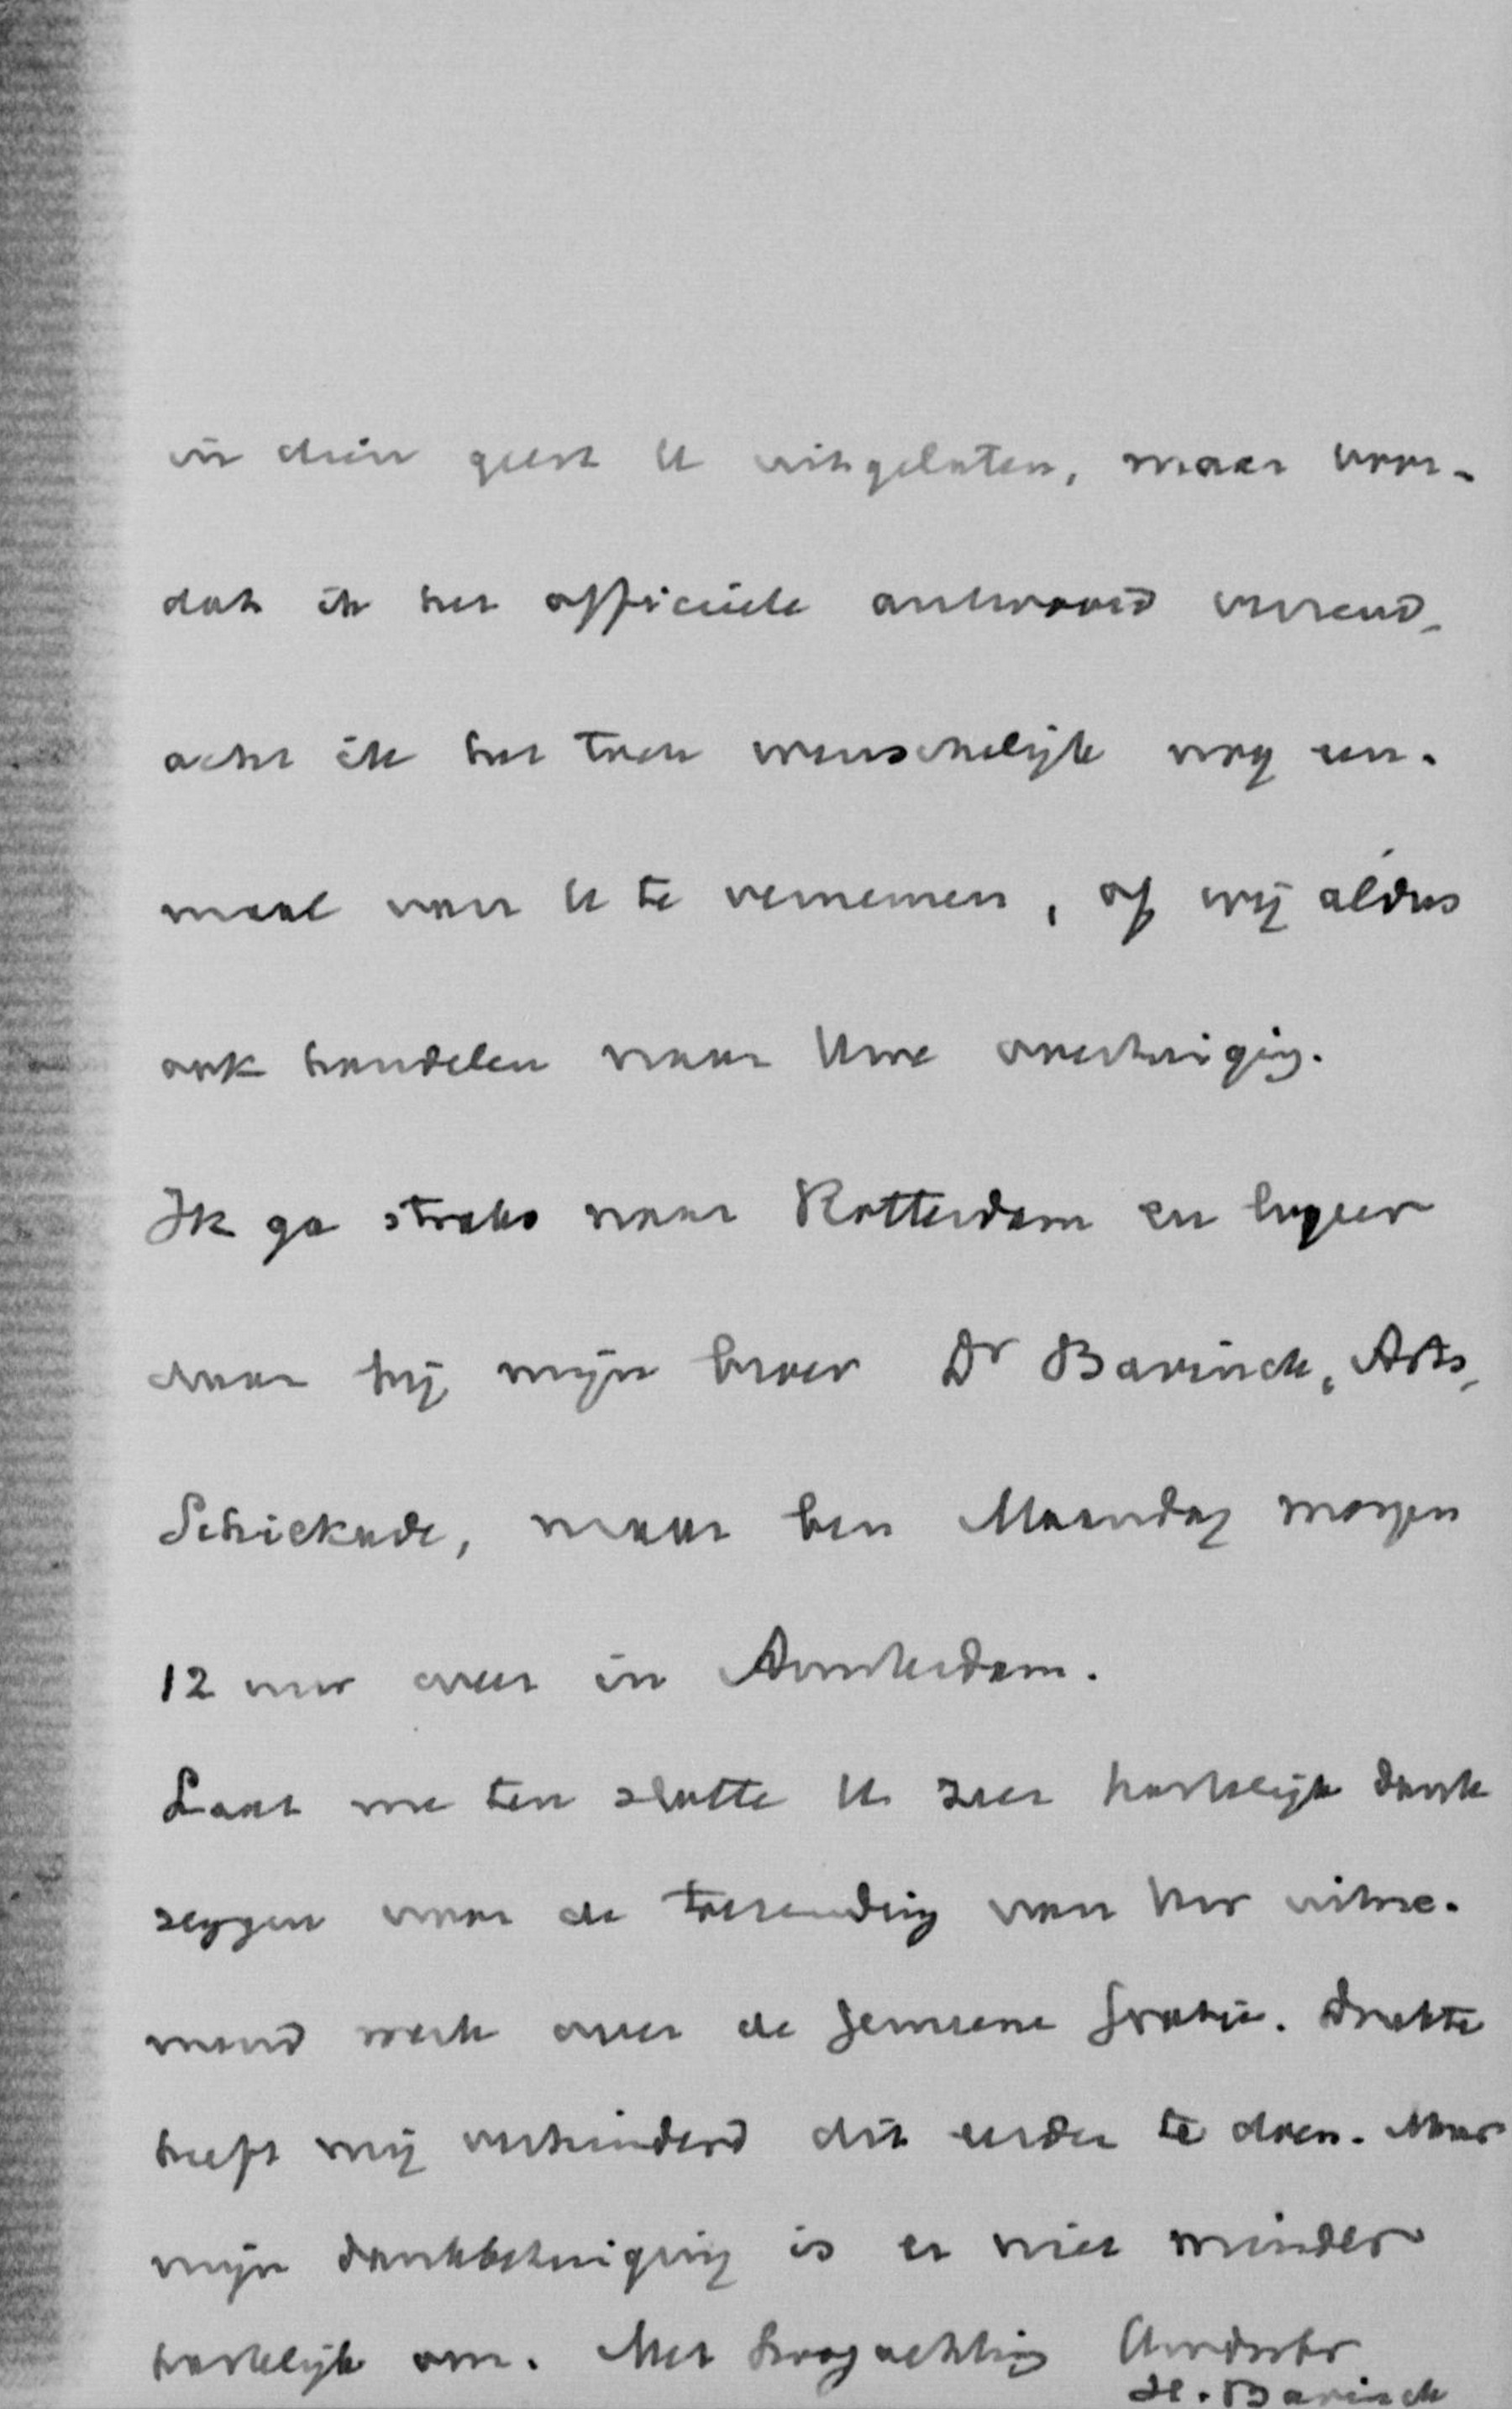 in dien geest U uitgelaten, maar voor-
dat ik het officieele antwoord verzend,
acht ik het toch wenschelijk nog een-
maal van U te vernemen, of wij aldus
ook handelen naar Uwe overtuiging.
Ik ga straks naar Rotterdam en logeer
daar bij mijn broer Dr Bavinck, Arts,
Schiekade, maar ben Maandag morgen
12 uur weer in Amsterdam.
Laat me ten slotte U zeer hartelijk dank
zeggen voor de toezending van Uw uitne-
mend werk over de Gemeene Gratie. Drukte
heeft mij verhinderd dit eerder te doen. Maar
mijn dankbetuiging is er niet minder
hartelijk om. Met hoogachting Uwdwbr
H. Bavinck